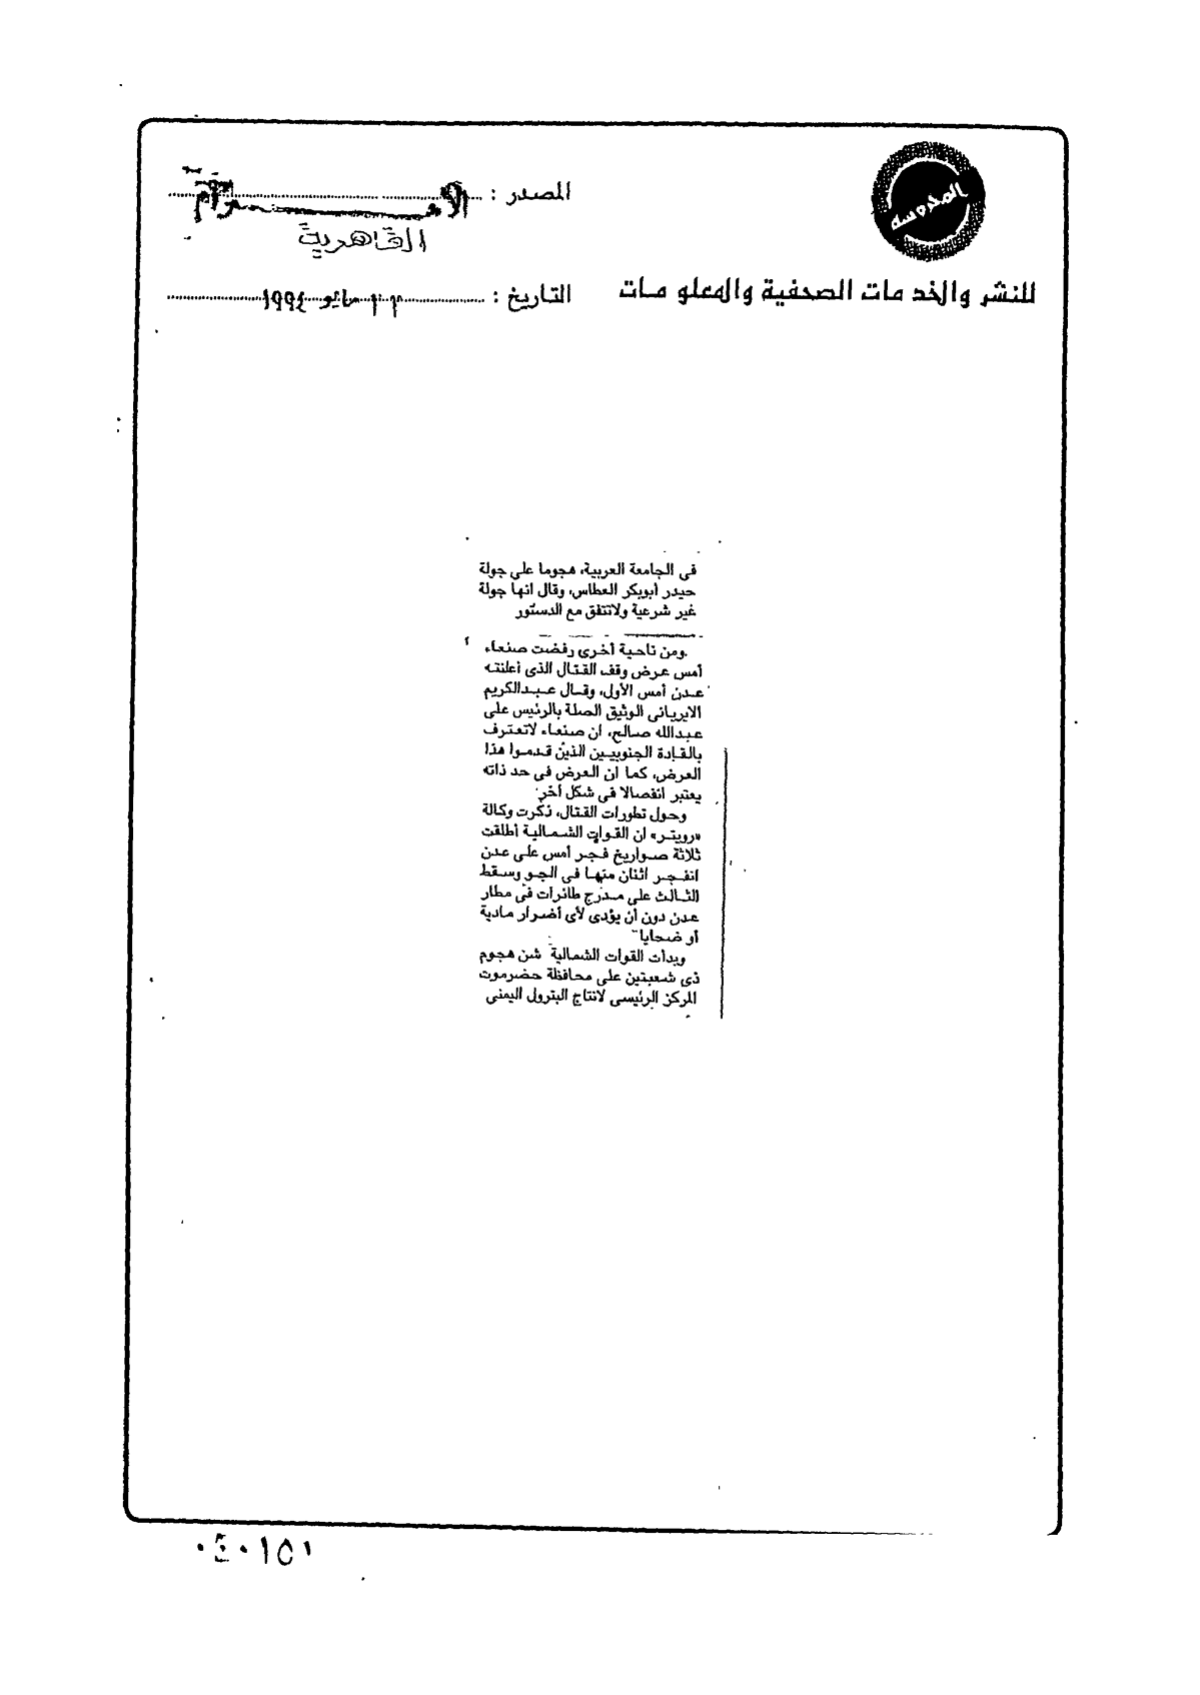 المحروسه
للنشر والخدمات الصحفية والمعلومات
المصدر :
الأهرام
القاهرية
التاريخ : ٢٣ مايو ١٩٩٤
فى الجامعة العربية، هجوما على جولة
حيدر أبوبكر العطاس، وقال انها جولة
غير شرعية ولاتتفق مع الدستور
ومن ناحية أخرى رفضت صنعاء
أمس عرض وقف القتال الذى أعلنته
عدن أمس الأول، وقال عبدالكريم
الايريانى الوثيق الصلة بالرئيس على
عبدالله صالح، ان صنعاء لاتعترف
بالقادة الجنوبيين الذين قدموا هذا
العرض، كما ان العرض فى حد ذاته
يعتبر انفصالا فى شكل أخر
وحول تطورات القتال، ذكرت وكالة
«رويتر» ان القوات الشمالية أطلقت
ثلاثة صواريخ فجر أمس على عدن
انفجر اثنان منها فى الجو وسقط
الثالث على مدرج طائرات فى مطار
عدن دون أن يؤدى لأى أضرار مادية
أو ضحايا
وبدأت القوات الشمالية شن هجوم
ذى شعبتين على محافظة حضرموت
المركز الرئيسى لانتاج البترول اليمنى